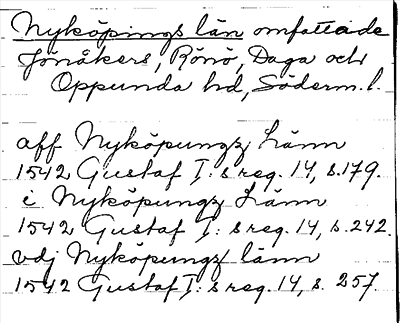 Nyköpings län omfattade
Jönåkers, Rönö, Daga och
Oppunda hd, Söderm. l.
aff Nyköpungz Länn
1542 Gustaf I:s reg. 14, s.179.
i Nyköpungz Länn
1542 Gustaf I:s reg. 14, s.242.
vdj Nyköpungz länn
1542 Gustaf I:s reg. 14, s. 257.